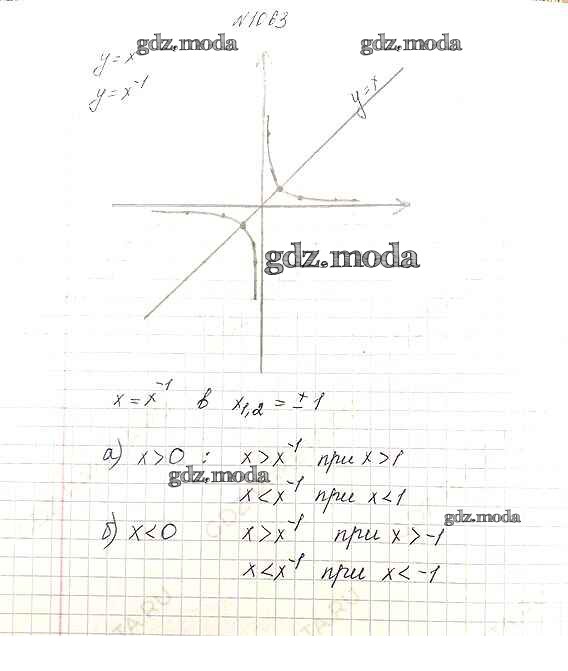 N1063
gdz.moda gdz.moda
y=x
y=x⁻¹
y=x
gdz.moda
x=x⁻¹ в x₁,₂=±1
а) x>0 : x>x⁻¹ при x>1
gdz.moda
x<x⁻¹ при x<1
gdz.moda
б) x<0 x>x⁻¹ при x>-1
x<x⁻¹ при x<-1
TA.RU
TA.RU